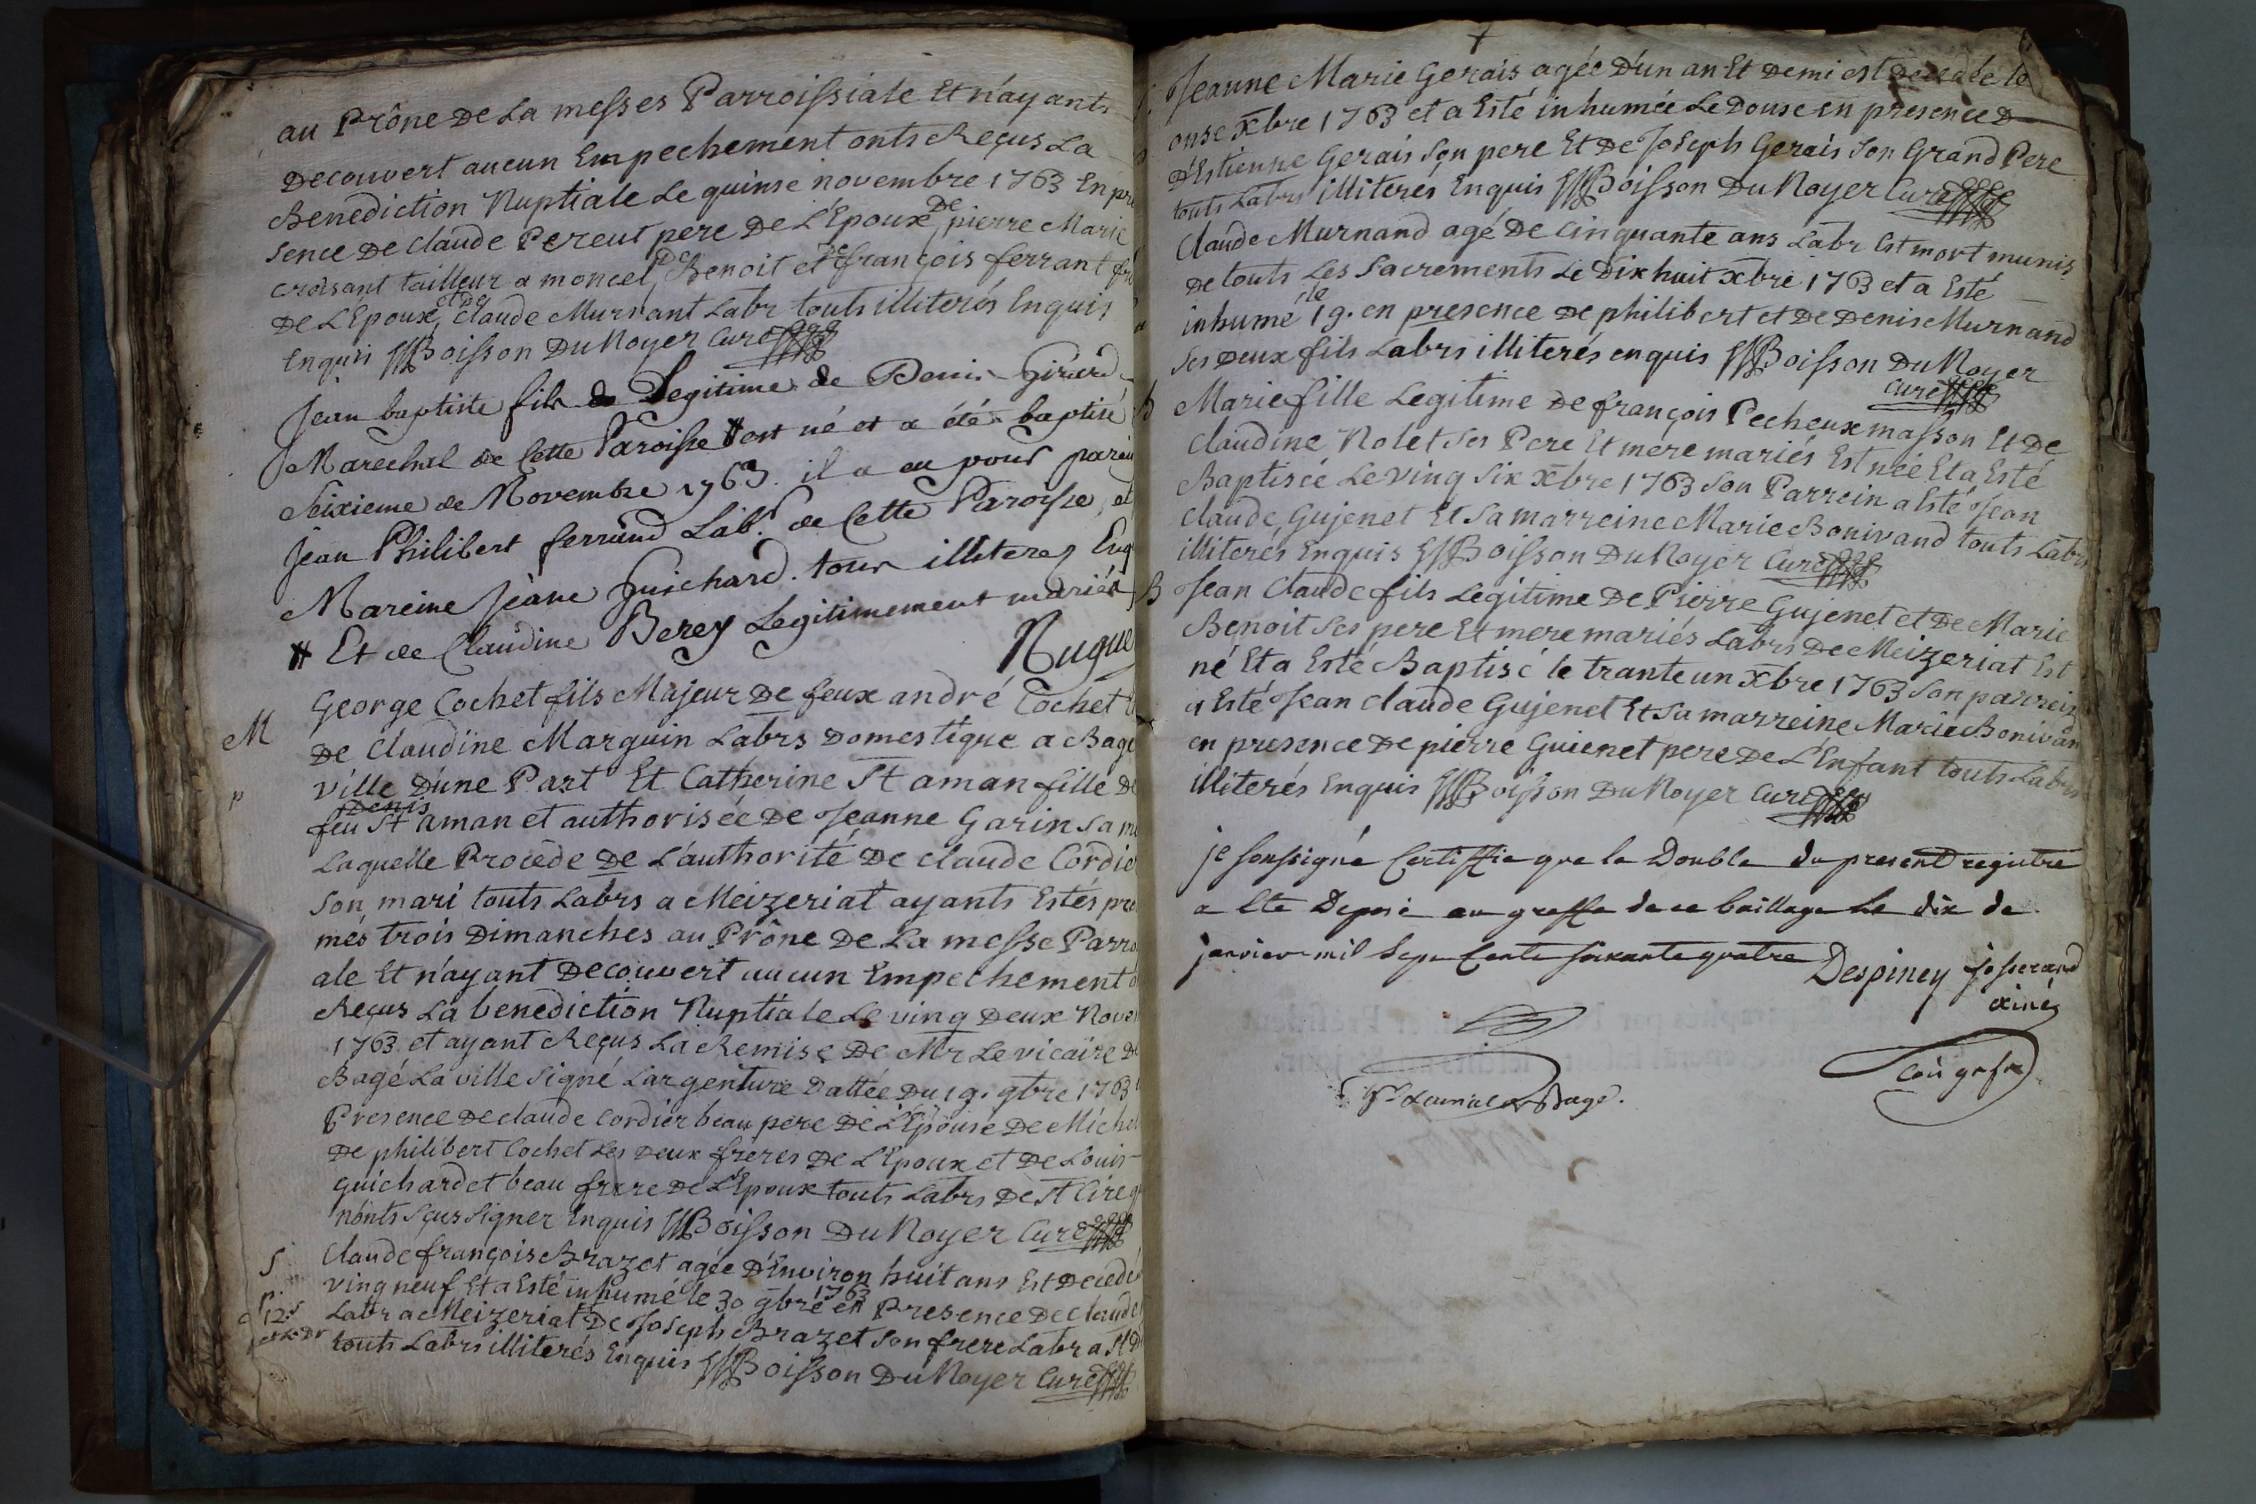 au Prône De La messes Parroissiale Et n'ayants
Decouvert aucun Empechement onts Reçus La
Benediction Nuptiale Le quinse novembre 1763 En pre
sence De claude Pereut pere De L'Epoux De pierre Marie
croisant tailleur a moncel De Benoit et De françois ferrant
De L'Epoux et De claude Murnant Labr touts illiterés Enquis
Enquis Boisson Du Noyer Curé
Jean baptiste fils Legitime de Denis Girard
Marechal de Cette Paroisse # est né et a été baptisé
Seixieme de Novembre 1763. il a eu pour parein
Jean Philibert ferrand Labr. de Cette Paroisse, et
Mareine Jeane Guichard. tous illiterez Enq
# Et de Claudine Berey Legitimement mariés
Nugue
M
George Cochet fils Majeur De feux andré Cochet
De Claudine Marguin Labrs Domestique a Bagé
p
ville D'une Part Et Catherine St aman fille De
feu Denis St aman et authorisée De Jeanne Garin sa
Laquelle Procède De L'authorité De claude Cordie
Son mari touts Labrs a Meizeriat ayants Estés pro
més trois Dimanches au Prône De La messe Parro
ale Et n'ayant Decouvert aucun Empechement
Reçus La benediction Nuptiale Le ving Deux Nove
1763 et ayant Reçus La Remise De Mr Le vicaire De
Bagé La ville signé Largenture Dattée Du 19. 9bre 1763
Presence De claude Cordier beau pere De L'Epouse De Michel
De philibert Cochet Les Deux freres De L'Epoux et De Louis
guichardet beau frere De L'Epoux touts Labrs De St Cire
n'onts sçus signer Enquis Boisson Du Noyer Curé
S
Claude françois Brazet agée D'Environ huit ans Est Decedé
ving neuf Et a Esté inhumé le 30 9bre 1763 en Presence De claude
12
Labr a Meizeriat De Joseph Brazet son frere Labr a St
touts Labrs illiterés Enquis Boisson Du Noyer Curé
Jeanne Marie Gerais agée D'un an Et Demi est Decedée le
onse xbre 1763 et a Esté inhumée Le Douse en presence
D'Estienne Gerais son pere Et De Joseph Gerais son Grand Pere
touts Labrs illiterés Enquis Boisson Du Noyer Curé
Claude Murnand agé De Cinquante ans Labr Est mort munis
De touts Les Sacrements Le Dix huit xbre 1763 et a Esté
inhumé le 19. en presence De philibert et De Denis Murnand
ses Deux fils Labrs illiterés enquis Boisson Du Noyer
Curé
B
Marie fille Legitime De françois Pecheux masson Et De
Claudine Nolet ses Pere Et mere mariés Est née Et a Esté
Baptisée Le ving six xbre 1763 son Parrein a Esté Jean
Claude Gujenet Et sa marreine Marie Bonivand touts Labrs
illiterés Enquis Boisson Du Noyer Curé
B
Jean Claude fils Legitime De Pierre Gujenet et De Marie
Benoit ses pere Et mere mariés Labrs De Meizeriat Est
né Et a Esté Baptisé le trante un xbre 1763 son parrein
a Esté Jean claude Gujenet Et sa marreine Marie Bonivan
en presence De pierre Guienet pere De L'Enfant touts Labrs
illiterés Enquis Boisson Du Noyer Curé
je soussigné Certiffie que le Double du present registre
a Eté Deposé au greffe de ce bailliage le dix de
janvier mil Sept Cents soixante quatre Despiney josserand
ainé